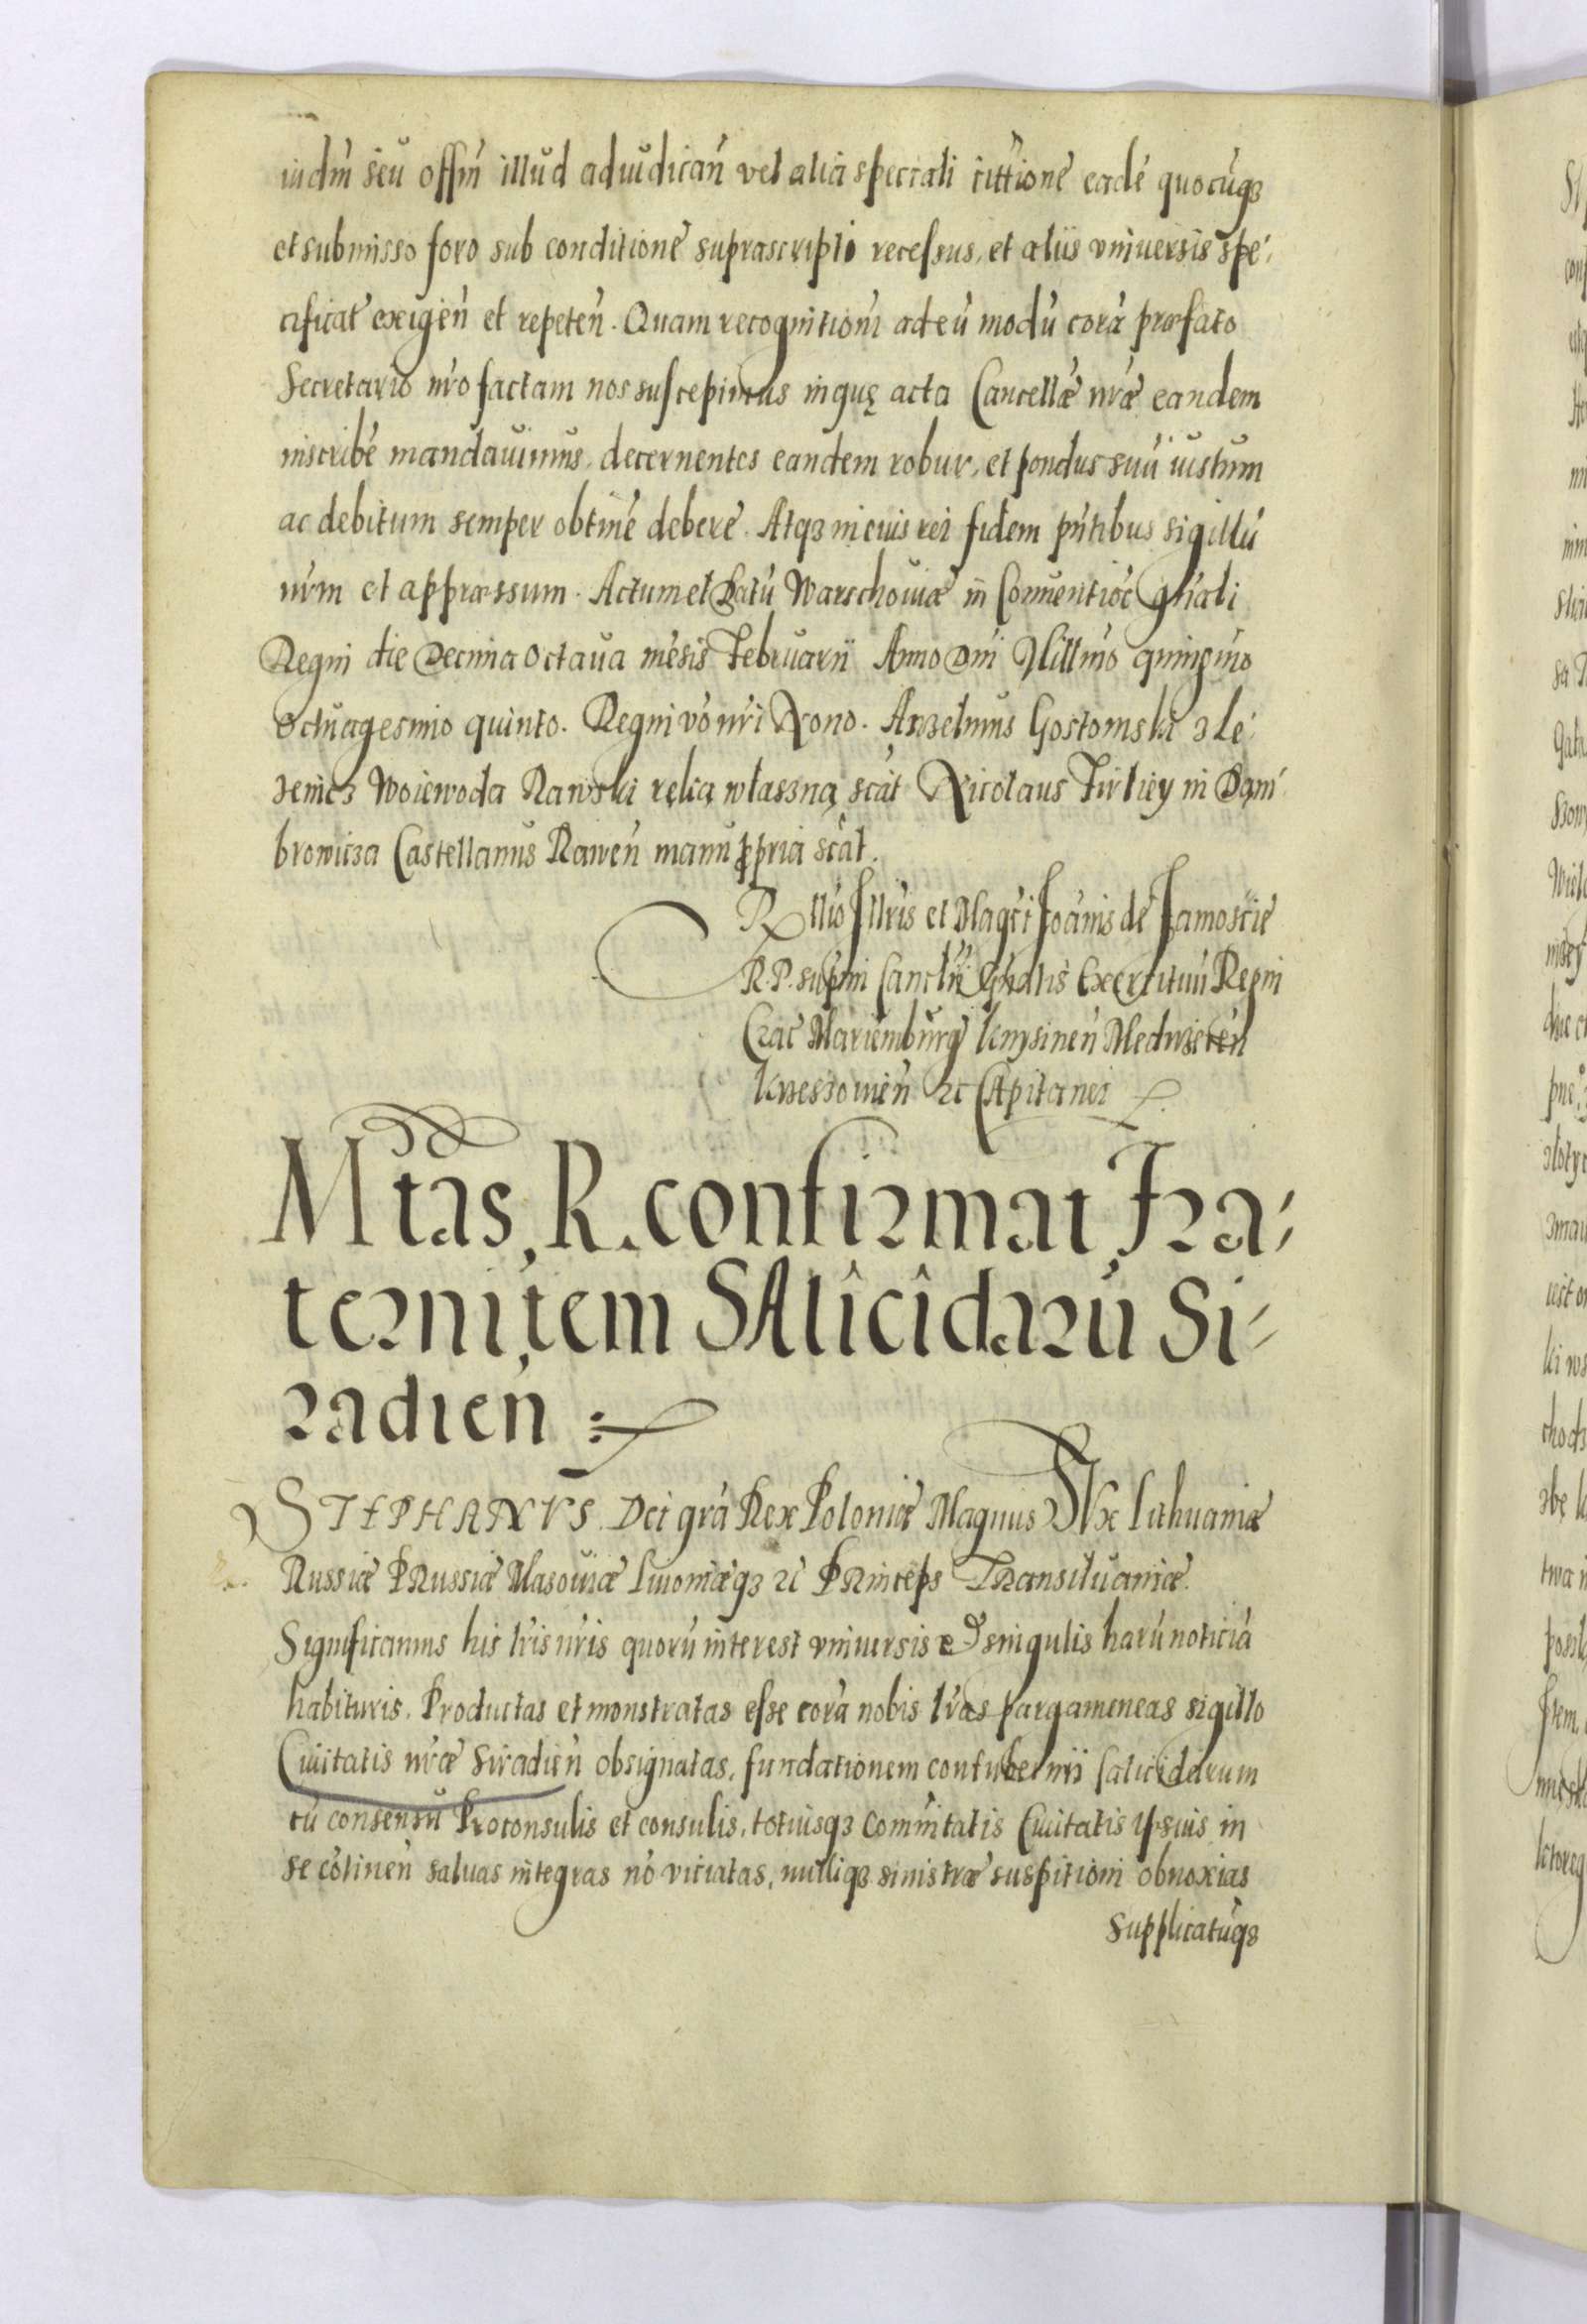 iudm̃ seu offm̃ illud adiudicañ vel alia speciali cittione eadē quocũqз
et submisso foro sub conditione suprascripti recessus, et aliis vniuersis spe-
cificat exigeñ et repeteñ. Quam recognitioni ad eũ modũ corã præfato
Secretario nr̃o factam nos suscepimus inquę acta Cancellæ nr̃æ eandem
inscribe mandauimus, decernentes eandem robur, et pondus suũ iustum
ac debitum semper obtine debere. Atqз in cuius rei fidem pñtibus sigillũ
nr̃m et appræssum. Actum et Datũ Warschouiæ in Conuentioe gñali
Regni die Decima Octaua mẽsis Februarii Anno Dni Millmo quingmo
Octuagesimo quinto. Regni vo nr̃i Nono. Anzelmus Gostomski z Le-
zenicz Woiewoda Rawski ręką własną scãt Nicolaus Firliey in Dam-
browicza Castellanus Raweñ manu ppria scãt.
Rllio Illris et Magci Joãnis de Zamoscie
R. P. supmi Canclrii Gñalis Exercituũ Regni
Crac Mariemburg Knysineñ Medirzeceñ
Krzessouieñ zc Capitanei
Mtas R. confirmat Fra-
ternitem SAlicidarũ Si-
radień
STEPHANVS Dei grã Rex Poloniæ Magnus Dux Lithuaniæ
Russiæ PRussiæ Masouiæ Liuoniæqз zc PRinceps TRansiluaniæ.
Significamus his lr̃is nr̃is quorũ interest vniuersis et singulis harũ noticiã
habituris. Productas et monstratas esse corã nobis lr̃as pargameneas sigillo
Ciuitatis nr̃æ Siradieñ obsignatas, fundationem contubernii salicidarum
cũ consensu Proconsulis et consulis, totiusqз commitatis Ciuitatis ipsius in
se cõtineñ saluas integras nõ viciatas, nulliqз sinistræ suspitioni obnoxias
Supplicatũqз